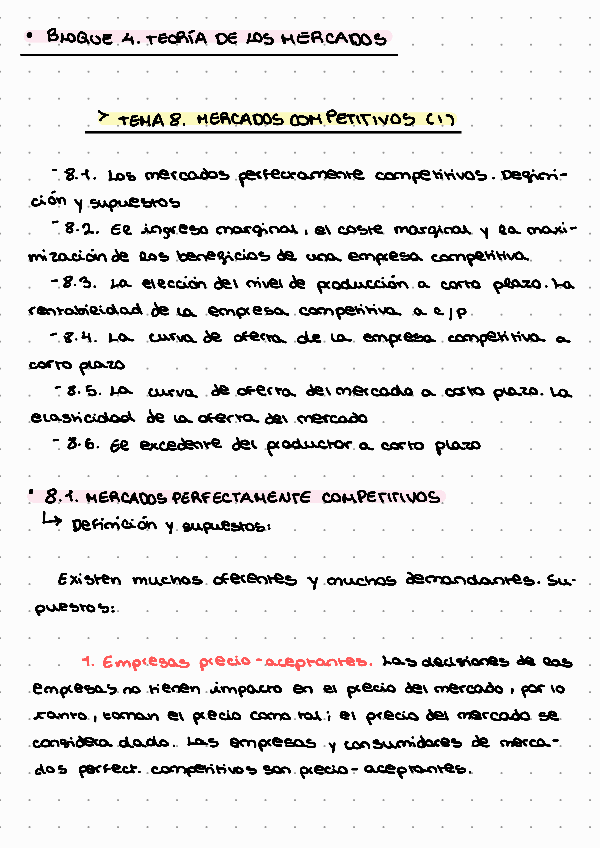 • BLOQUE 4. TEORÍA DE LOS MERCADOS
> TEMA 8. MERCADOS COMPETITIVOS (1)
- 8.1. Los mercados perfectamente competitivos. Defini-
ción y supuestos
- 8.2. El ingreso marginal, el coste marginal y la maxi-
mización de los beneficios de una empresa competitiva
- 8.3. La elección del nivel de producción a corto plazo. La
rentabilidad de la empresa competitiva a c/p
- 8.4. La curva de oferta de la empresa competitiva a
corto plazo
- 8.5. La curva de oferta del mercado a corto plazo. La
elasticidad de la oferta del mercado
- 8.6. El excedente del productor a corto plazo
• 8.1. MERCADOS PERFECTAMENTE COMPETITIVOS
↳ Definición y supuestos:
Existen muchos oferentes y muchos demandantes. Su-
puestos:
1. Empresas precio-aceptantes. Las decisiones de las
empresas no tienen impacto en el precio del mercado, por lo
tanto, toman el precio como tal; el precio del mercado se
considera dado. Las empresas y consumidores de merca-
dos perfect. competitivos son precio-aceptantes.